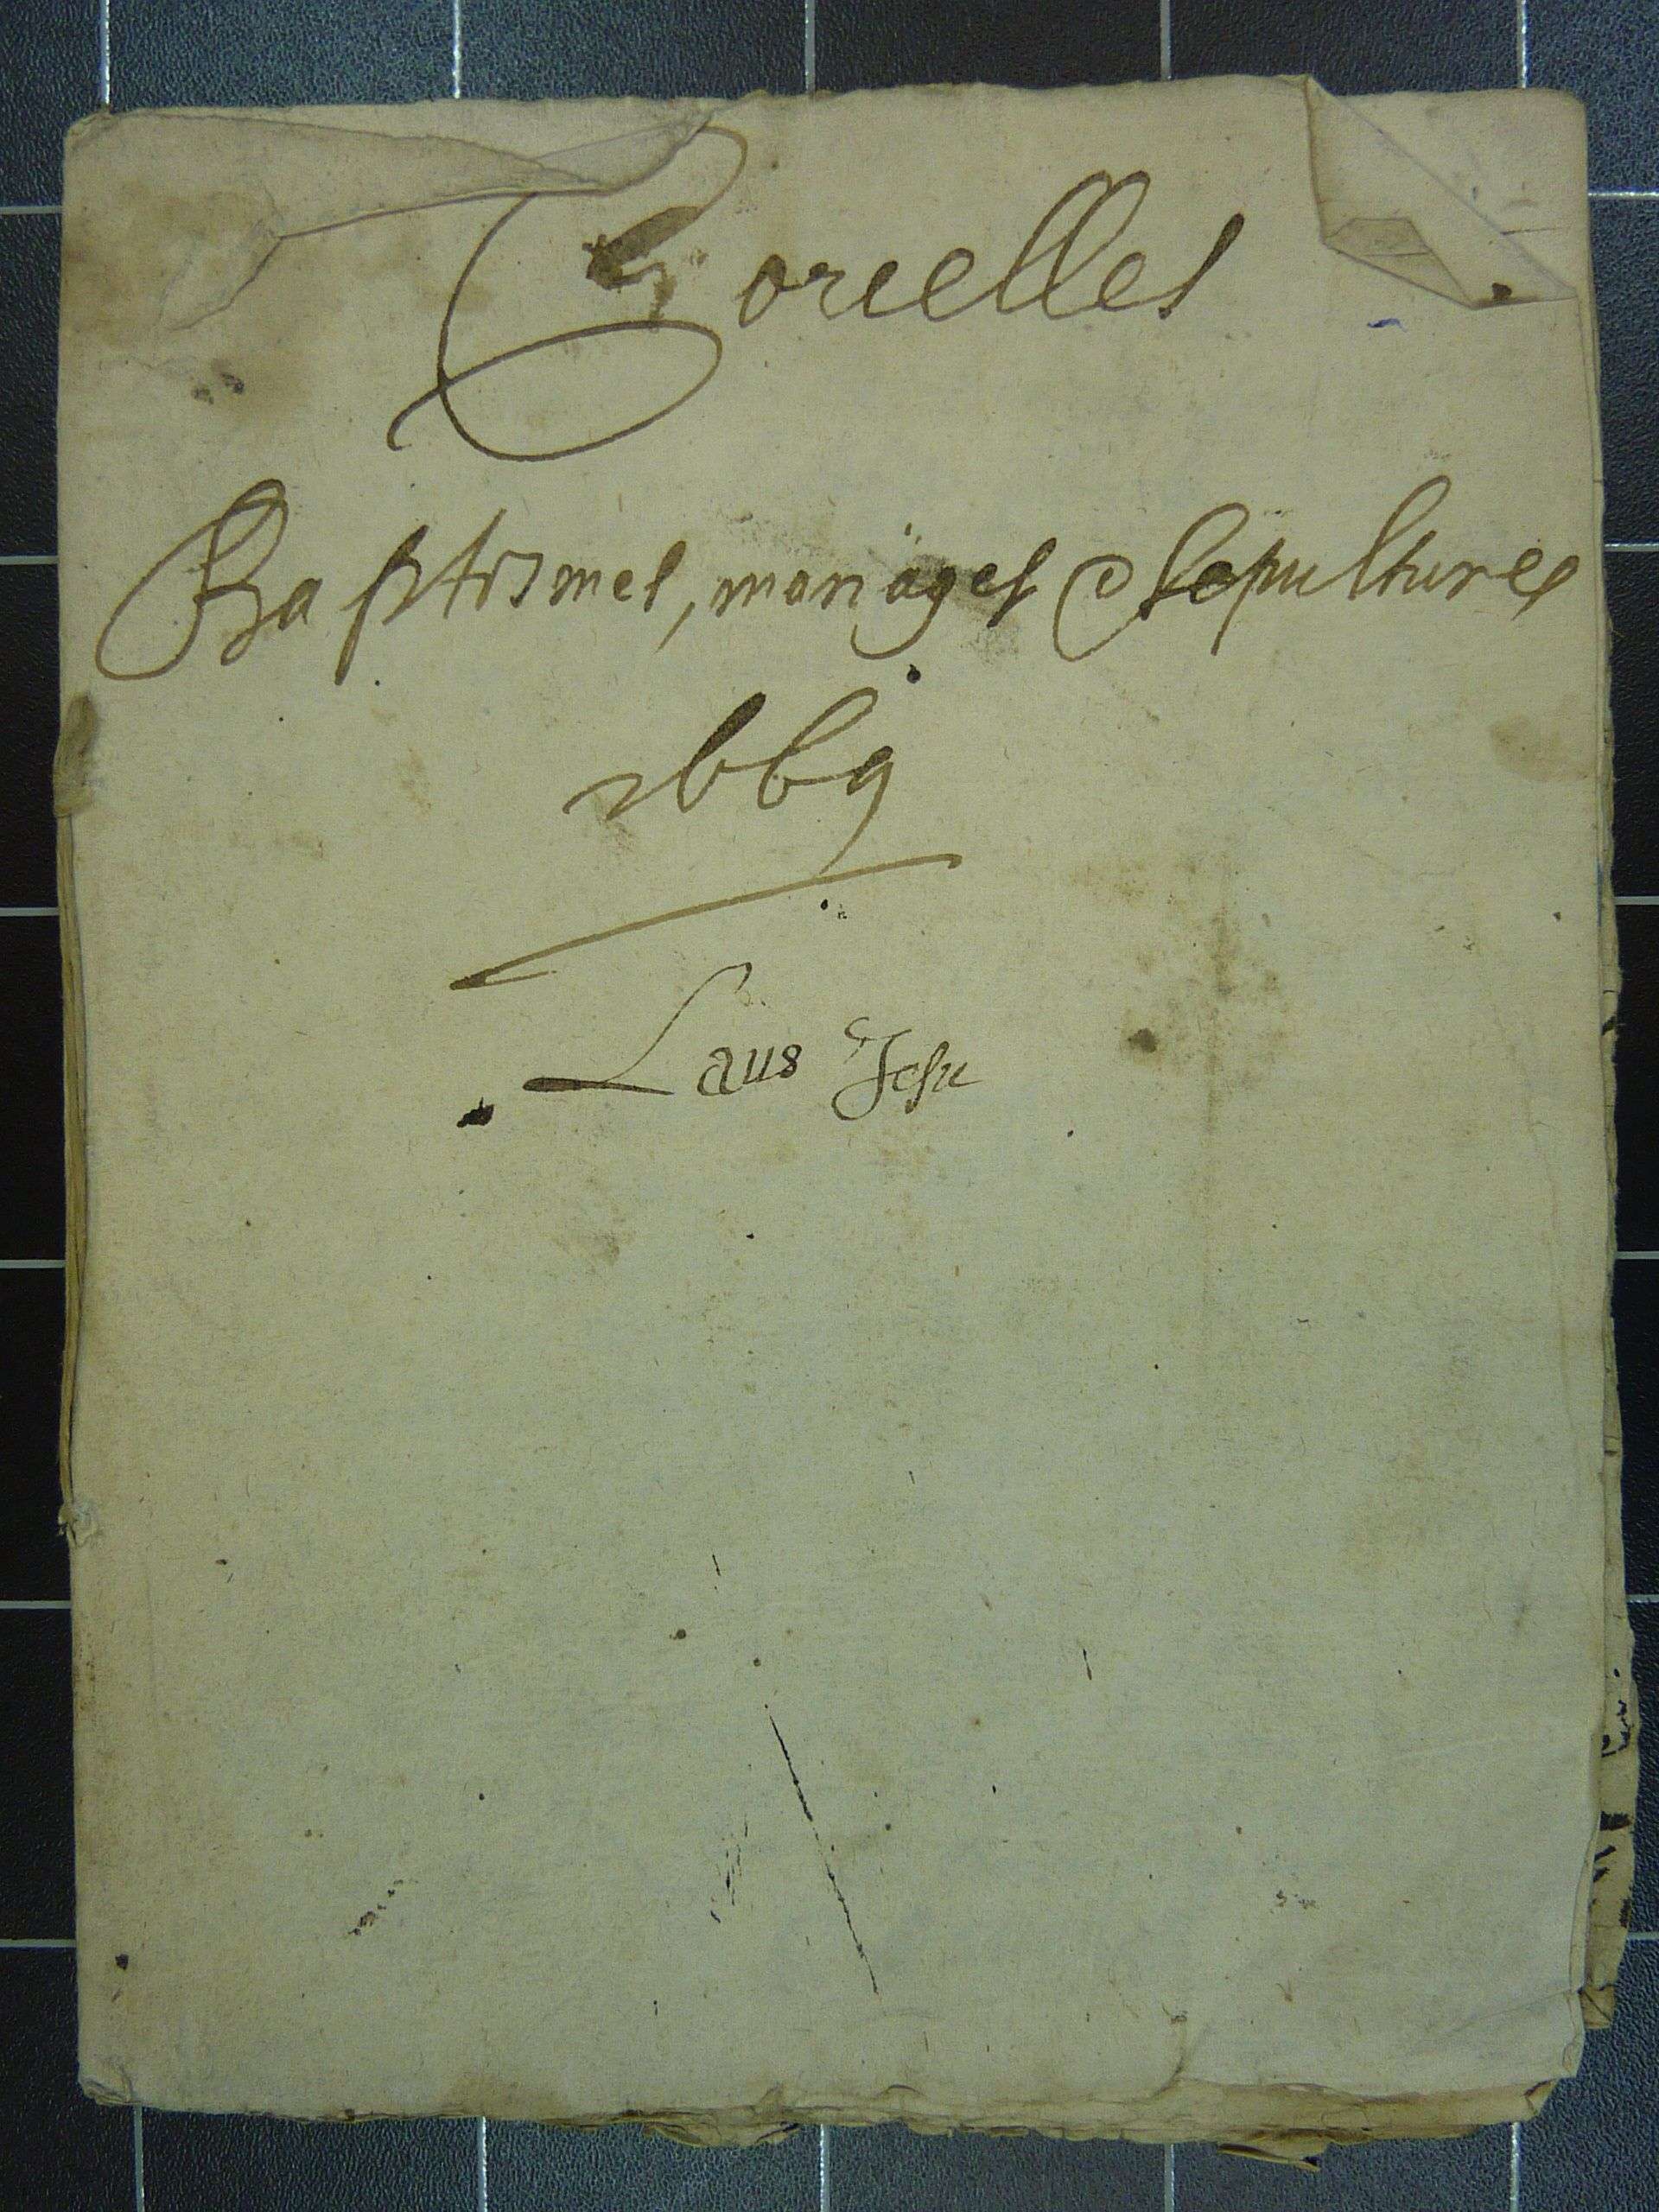 Corcelles
Baptismes, mariages & sepultures
1669
Laus Jesu